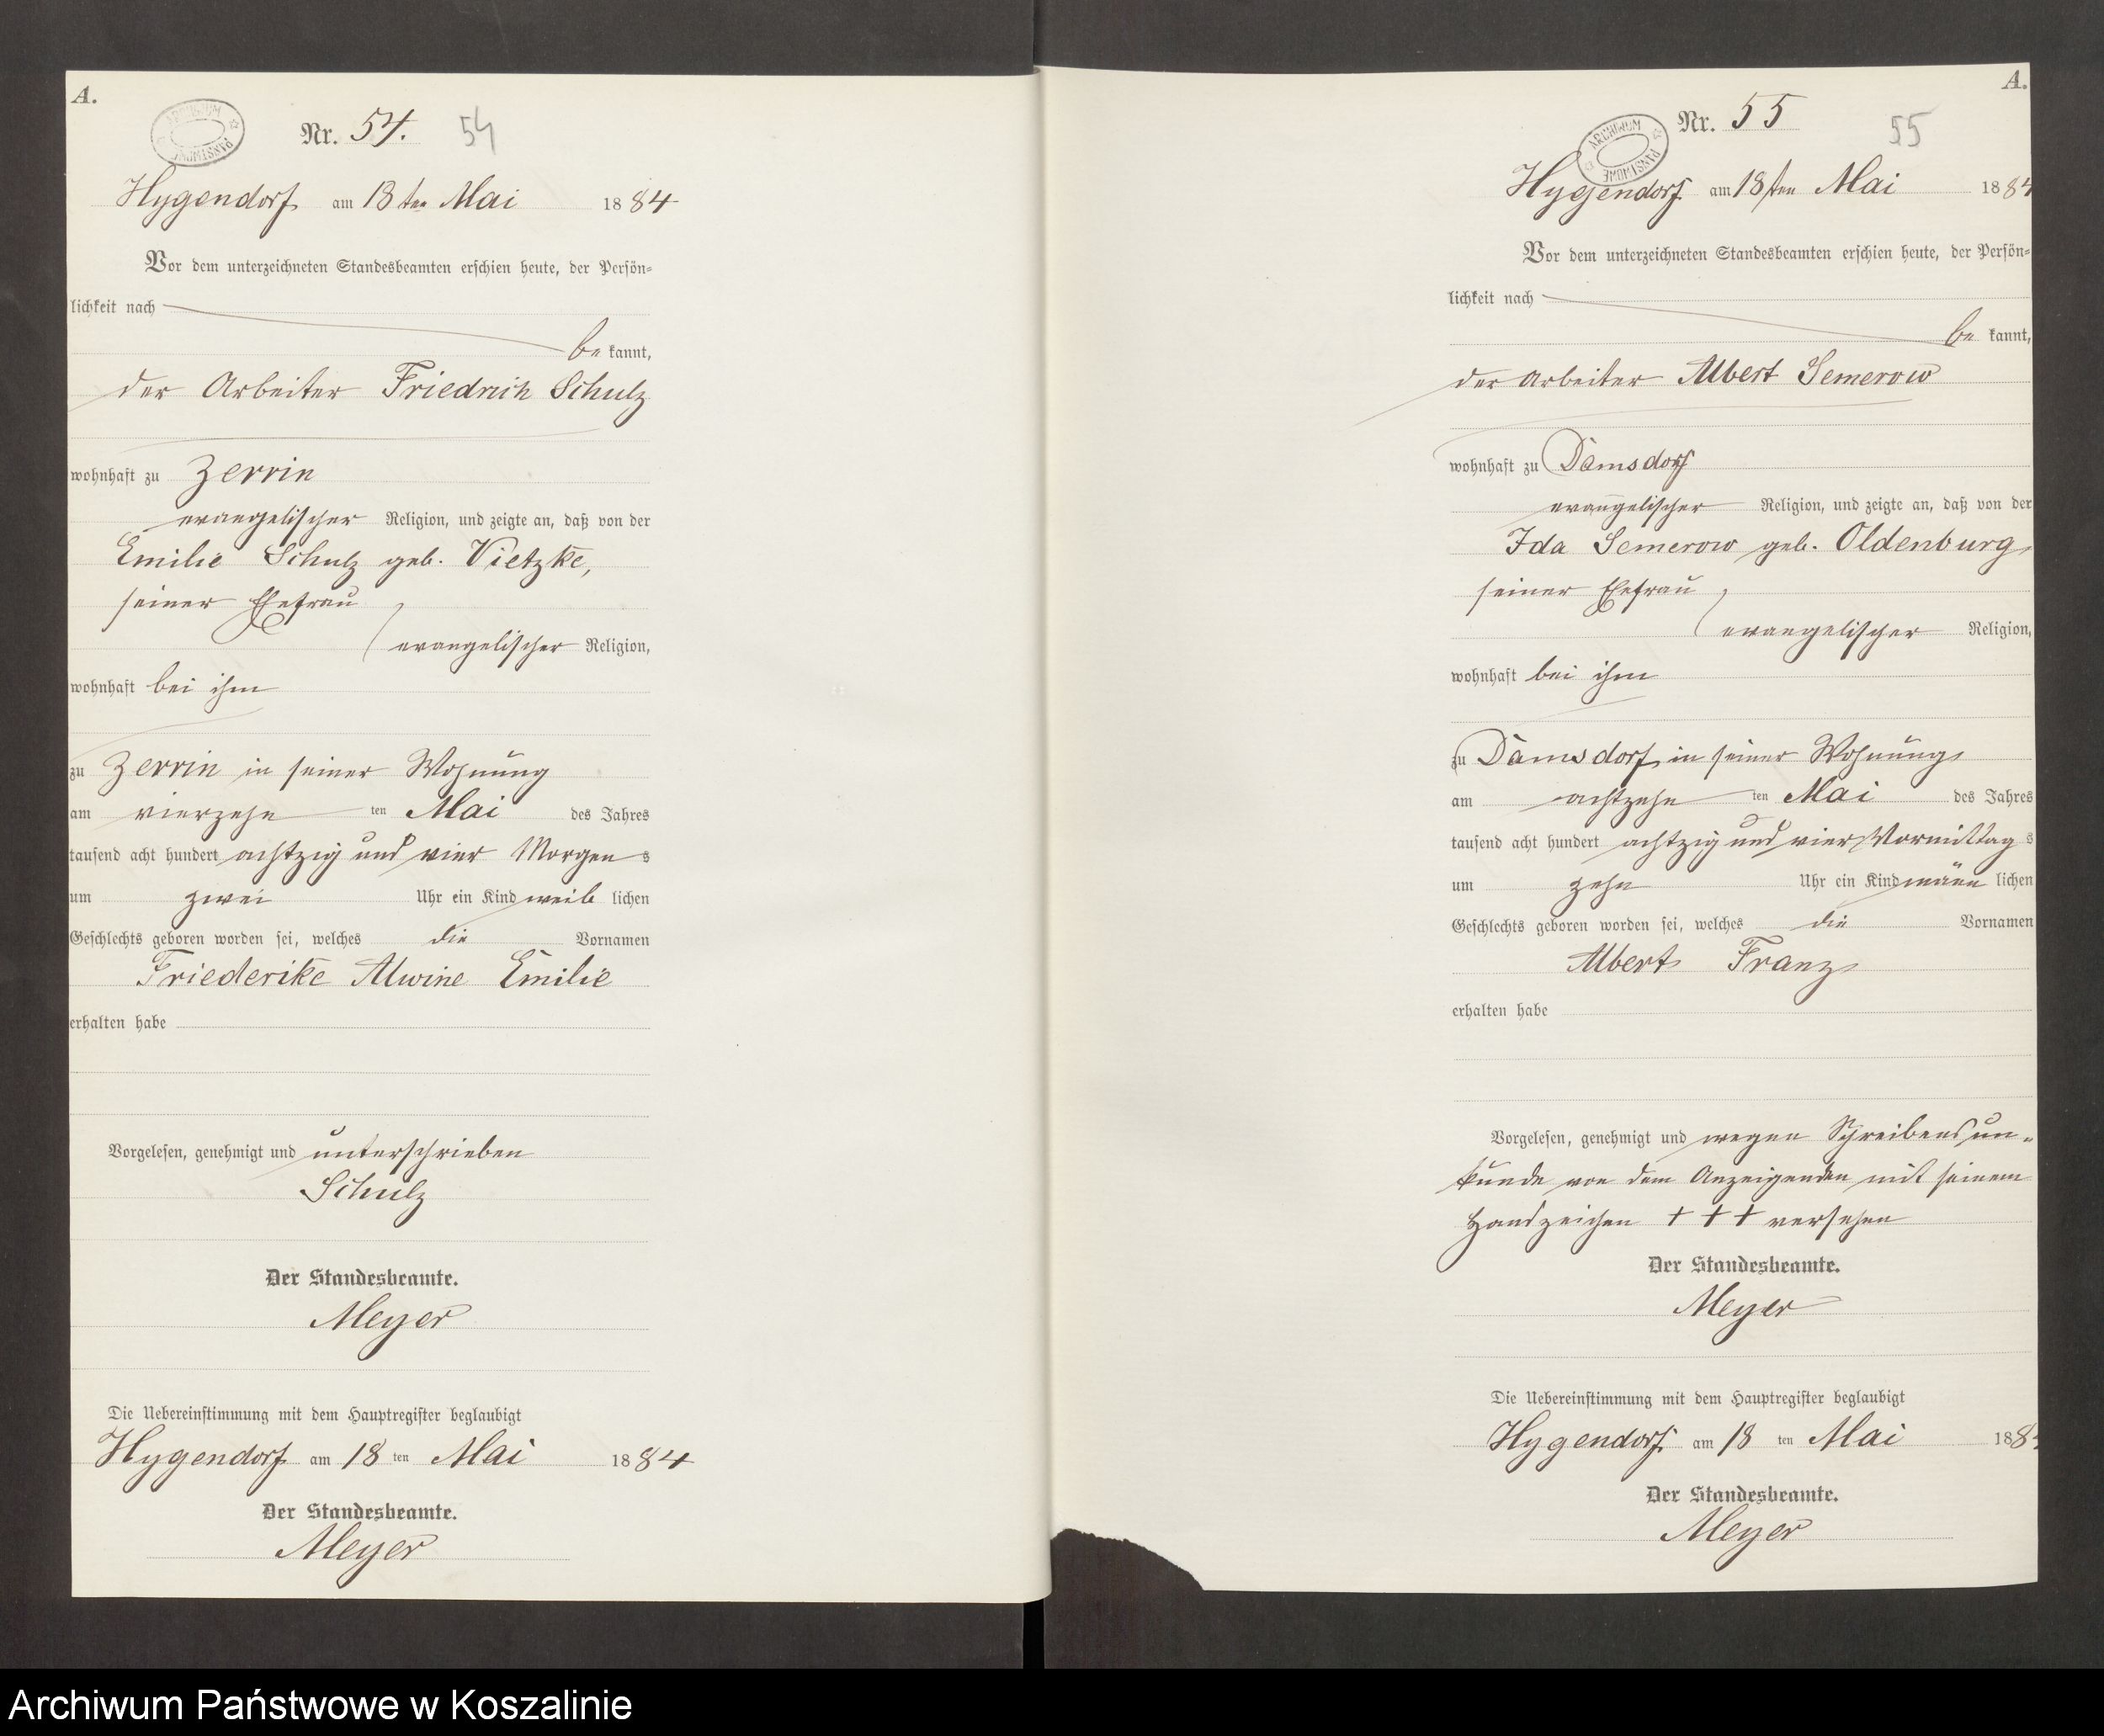 A.
ARCHIWUM PAŃSTWOWE
Nr. 54. 54
Hygendorf am 18ten Mai 1884
Vor dem unterzeichneten Standesbeamten erschien heute, der Persön=
lichkeit nach
be kannt,
der Arbeiter Friedrich Schulz
wohnhaft zu Zerrin
evangelischer Religion, und zeigte an, daß von der
Emilie Schulz geb. Vietzke,
seiner Ehefrau,
evangelischer Religion,
wohnhaft bei ihm
zu Zerrin in seiner Wohnung
am vierzehn ten Mai des Jahres
tausend acht hundert achtzig und vier Morgen s
um zwei Uhr ein Kind weib lichen
Geschlechts geboren worden sei, welches die Vornamen
Friederike Alwine Emilie
erhalten habe
Vorgelesen, genehmigt und unterschrieben
Schulz
Der Standesbeamte.
Meyer
Die Uebereinstimmung mit dem Hauptregister beglaubigt
Hygendorf am 18 ten Mai 1884
Der Standesbeamte.
Meyer
A.
ARCHIWUM PAŃSTWOWE
Nr. 55 55
Hygendorf am 18ten Mai 1884
Vor dem unterzeichneten Standesbeamten erschien heute, der Persön=
lichkeit nach
be kannt,
der Arbeiter Albert Semerow
wohnhaft zu Damsdorf
evangelischer Religion, und zeigte an, daß von der
Ida Semerow geb. Oldenburg,
seiner Ehefrau,
evangelischer Religion,
wohnhaft bei ihm
zu Damsdorf in seiner Wohnung
am achtzehn ten Mai des Jahres
tausend acht hundert achtzig und vier Vormittag s
um zehn Uhr ein Kind männ lichen
Geschlechts geboren worden sei, welches die Vornamen
Albert Franz
erhalten habe
Vorgelesen, genehmigt und wegen Schreibensun=
kunde von dem Anzeigenden mit seinem
Handzeichen + + + versehen
Der Standesbeamte.
Meyer
Die Uebereinstimmung mit dem Hauptregister beglaubigt
Hygendorf am 18 ten Mai 188
Der Standesbeamte.
Meyer
Archiwum Państwowe w Koszalinie